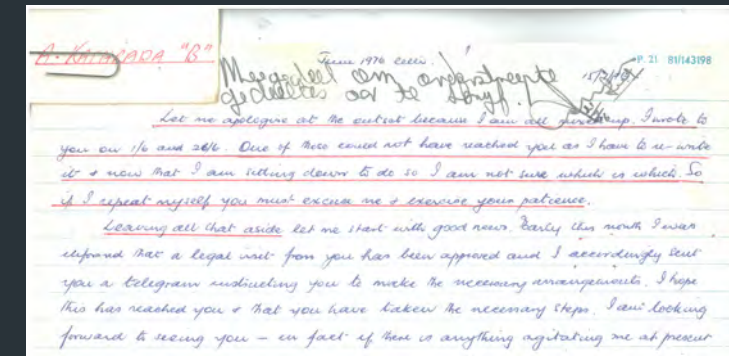 A. KATHRADA "B"
June 1976 cell.
P. 21 81/143198
Meegedeel om ongeskreepte
gedeeltes oor te skryf.
Let me apologise at the outset because I am all mixed up. I wrote to
you on 1/6 and 26/6. One of these could not have reached you as I have to re-write
it & now that I am sitting down to do so I am not sure which is which. So
if I repeat myself you must excuse me & exercise your patience.
Leaving all that aside let me start with good news. Early this month I was
informed that a legal visit from you has been approved and I accordingly sent
you a telegram instructing you to make the necessary arrangements. I hope
this has reached you & that you have taken the necessary steps. I am looking
forward to seeing you – in fact if there is anything agitating me at present